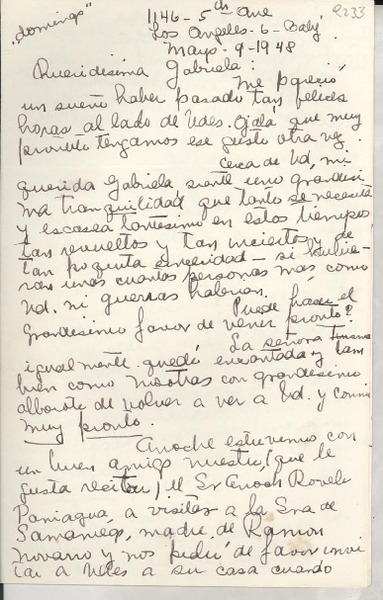 9233
"domingo"
1146 - 5th Ave
Los Angeles - 6 - Calif
Mayo - 9 - 1948
Queridísima Gabriela:
Me pareció
un sueño haber pasado tan felices
horas al lado de Udes. Ojalá que muy
pronto tengamos ese gusto otra vez.
Cerca de Ud, mi
querida Gabriela, siente uno grandísi
ma tranquilidad que tanto se necesita
y escasea tantísimo en estos tiempos
tan revueltos y tan inciertos y de
tan poquita sinceridad - si hubie-
ran unas cuantas personas más como
Ud. ni guerras habrían.
Puede hacer el
grandísimo favor de venir pronto?
La señora
igualmente quedó encantada y tam
bién como nosotras con grandísimo
alboroto de volver a ver a Ud. y
muy pronto.
Anoche estuvimos con
un buen amigo nuestro, (que le
gusta recitar) el Sr Enoch
Paniagua, a visitar a la Sra de
Samaniego, madre de Ramon
Novarro y nos pidió de favor invi
tar a Udes a su casa cuando